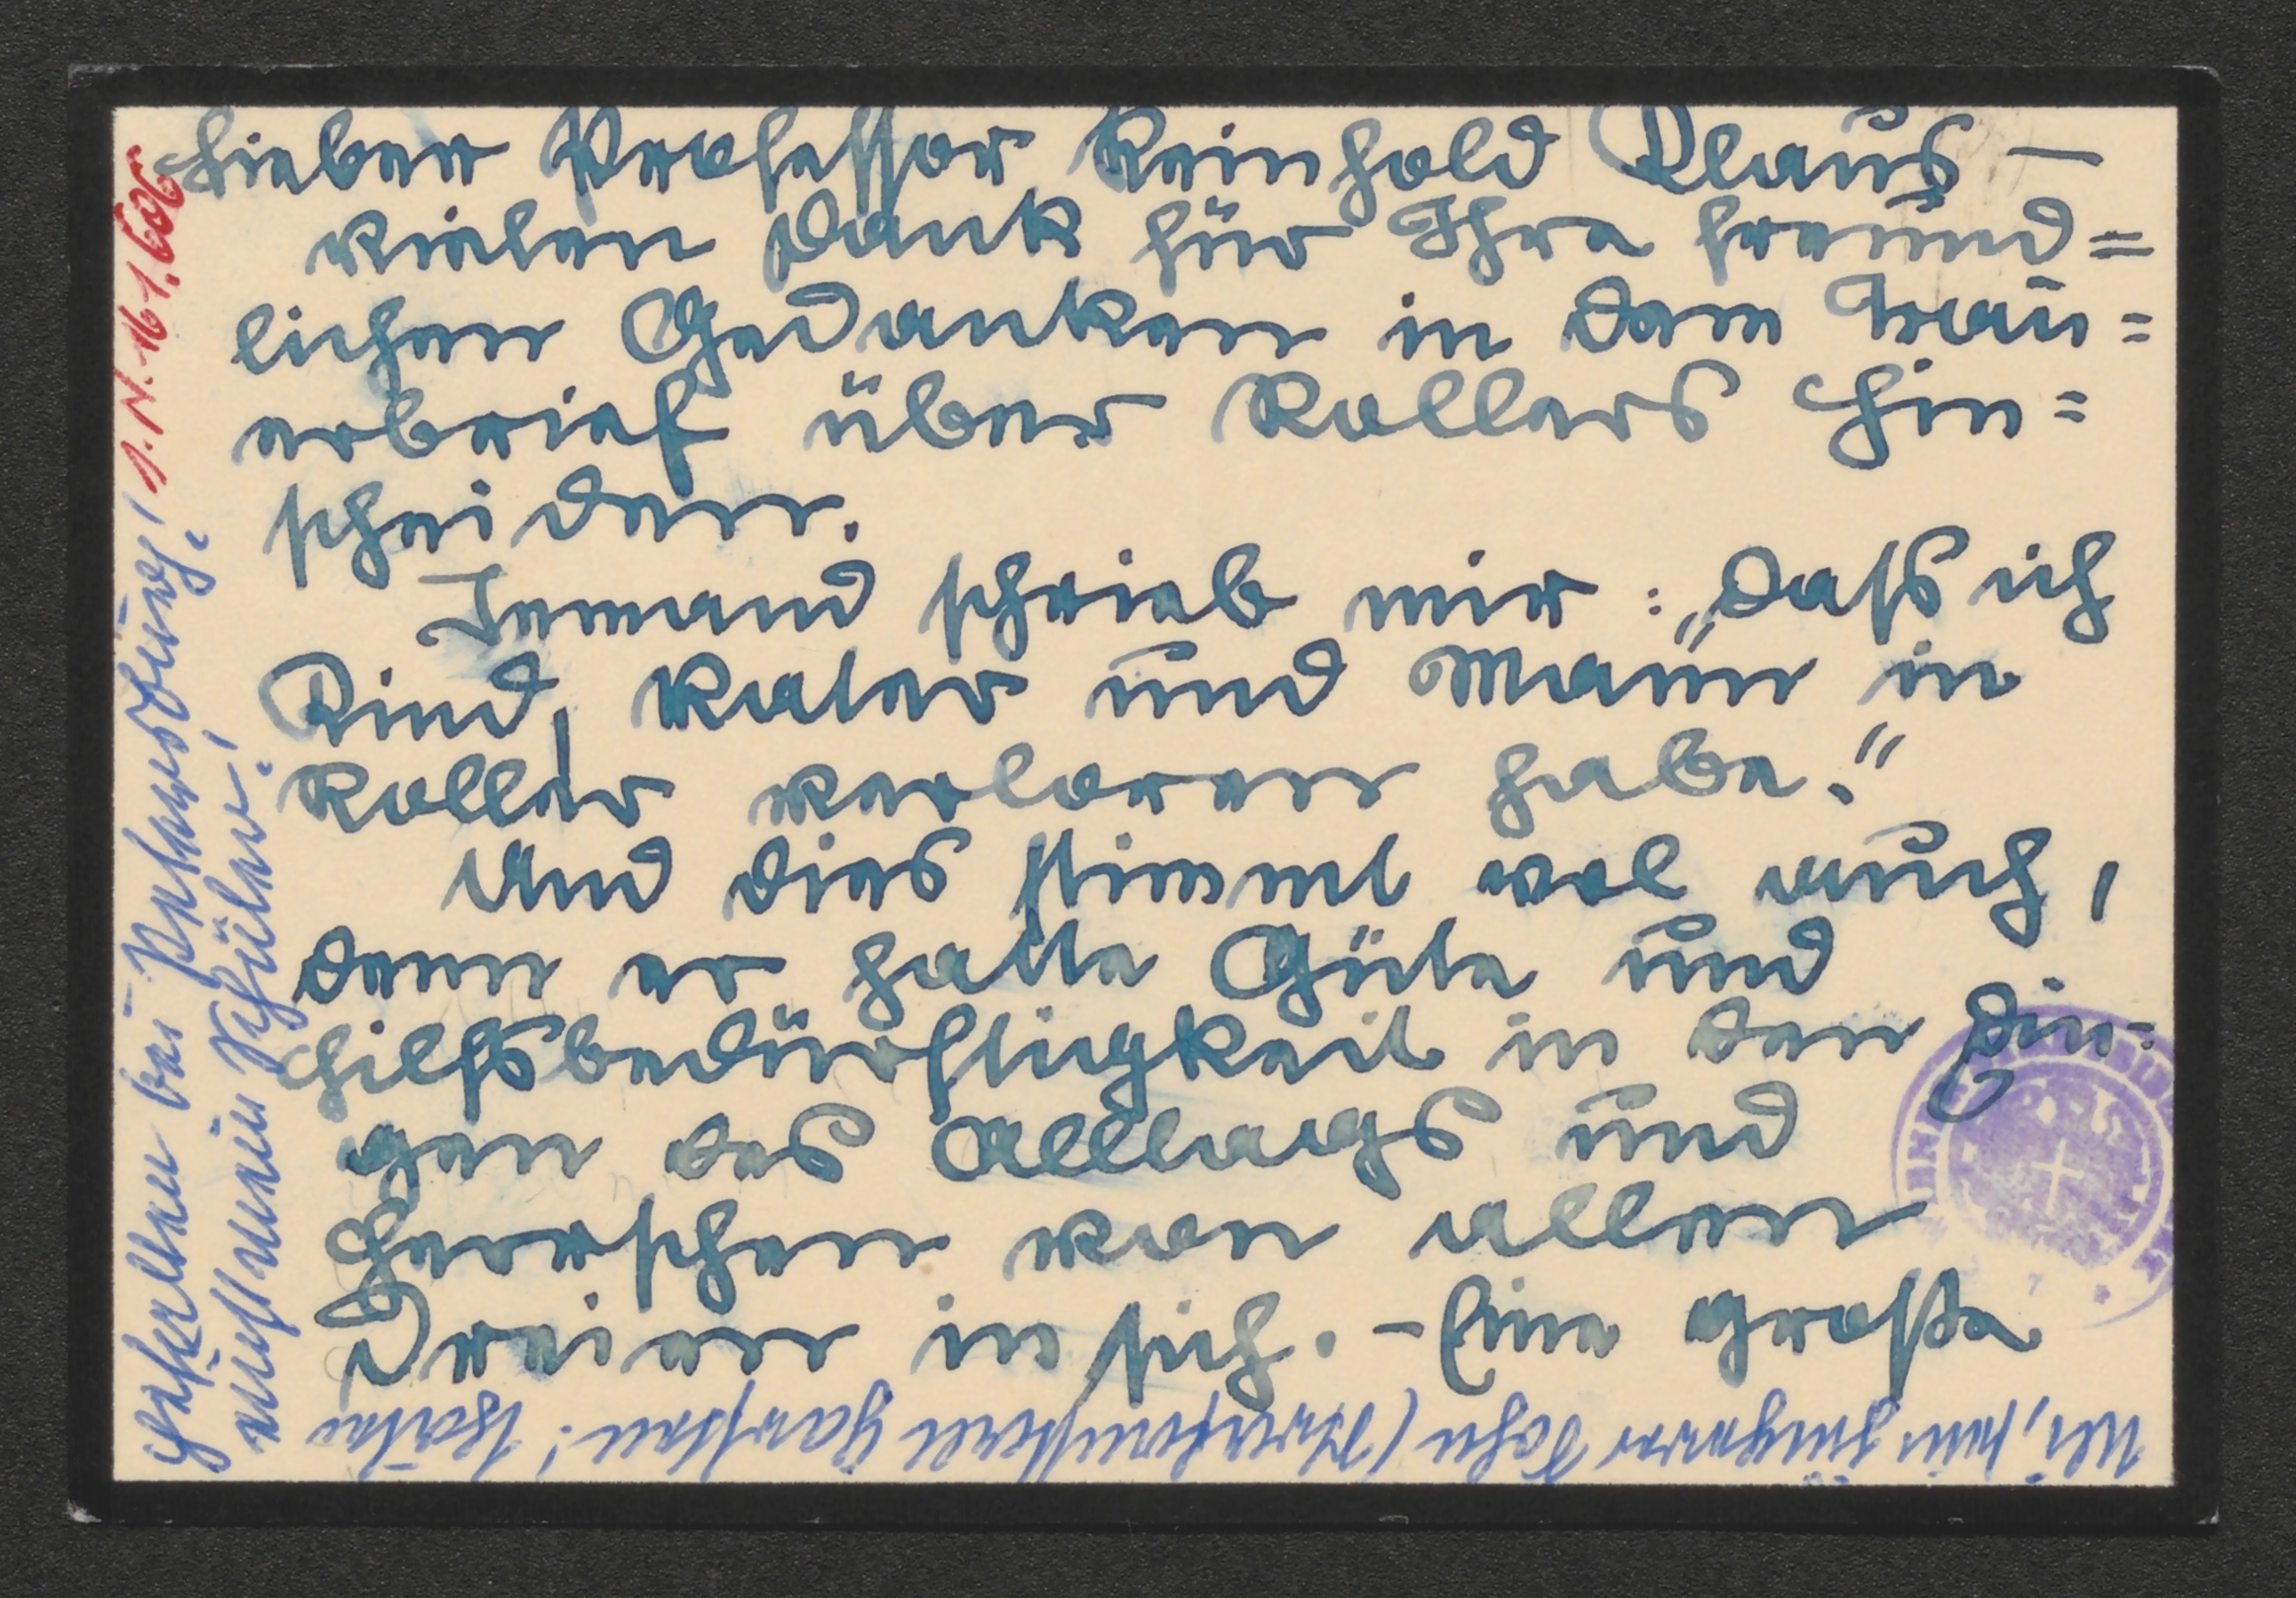 Lieber Professor Reinhold Klaus –
Vielen Dank für Ihre freund=
lichen Gedanken in dem Trau=
erbrief über Rollers Hin=
scheiden.
Jemand schrieb mir: „Dass ich
Kind, Vater und Mann in
Roller verloren habe.“
Und dies stimmt wol auch,
denn er hatte Güte und
Hilfsbedürftigkeit in den Din=
gen des Alltags und
Herrschen von allen
Dreien in sich. – Eine große
Uli, sein jüngerer Sohn
bei Petersburg!
mein Schüler!
J.N. 161.606